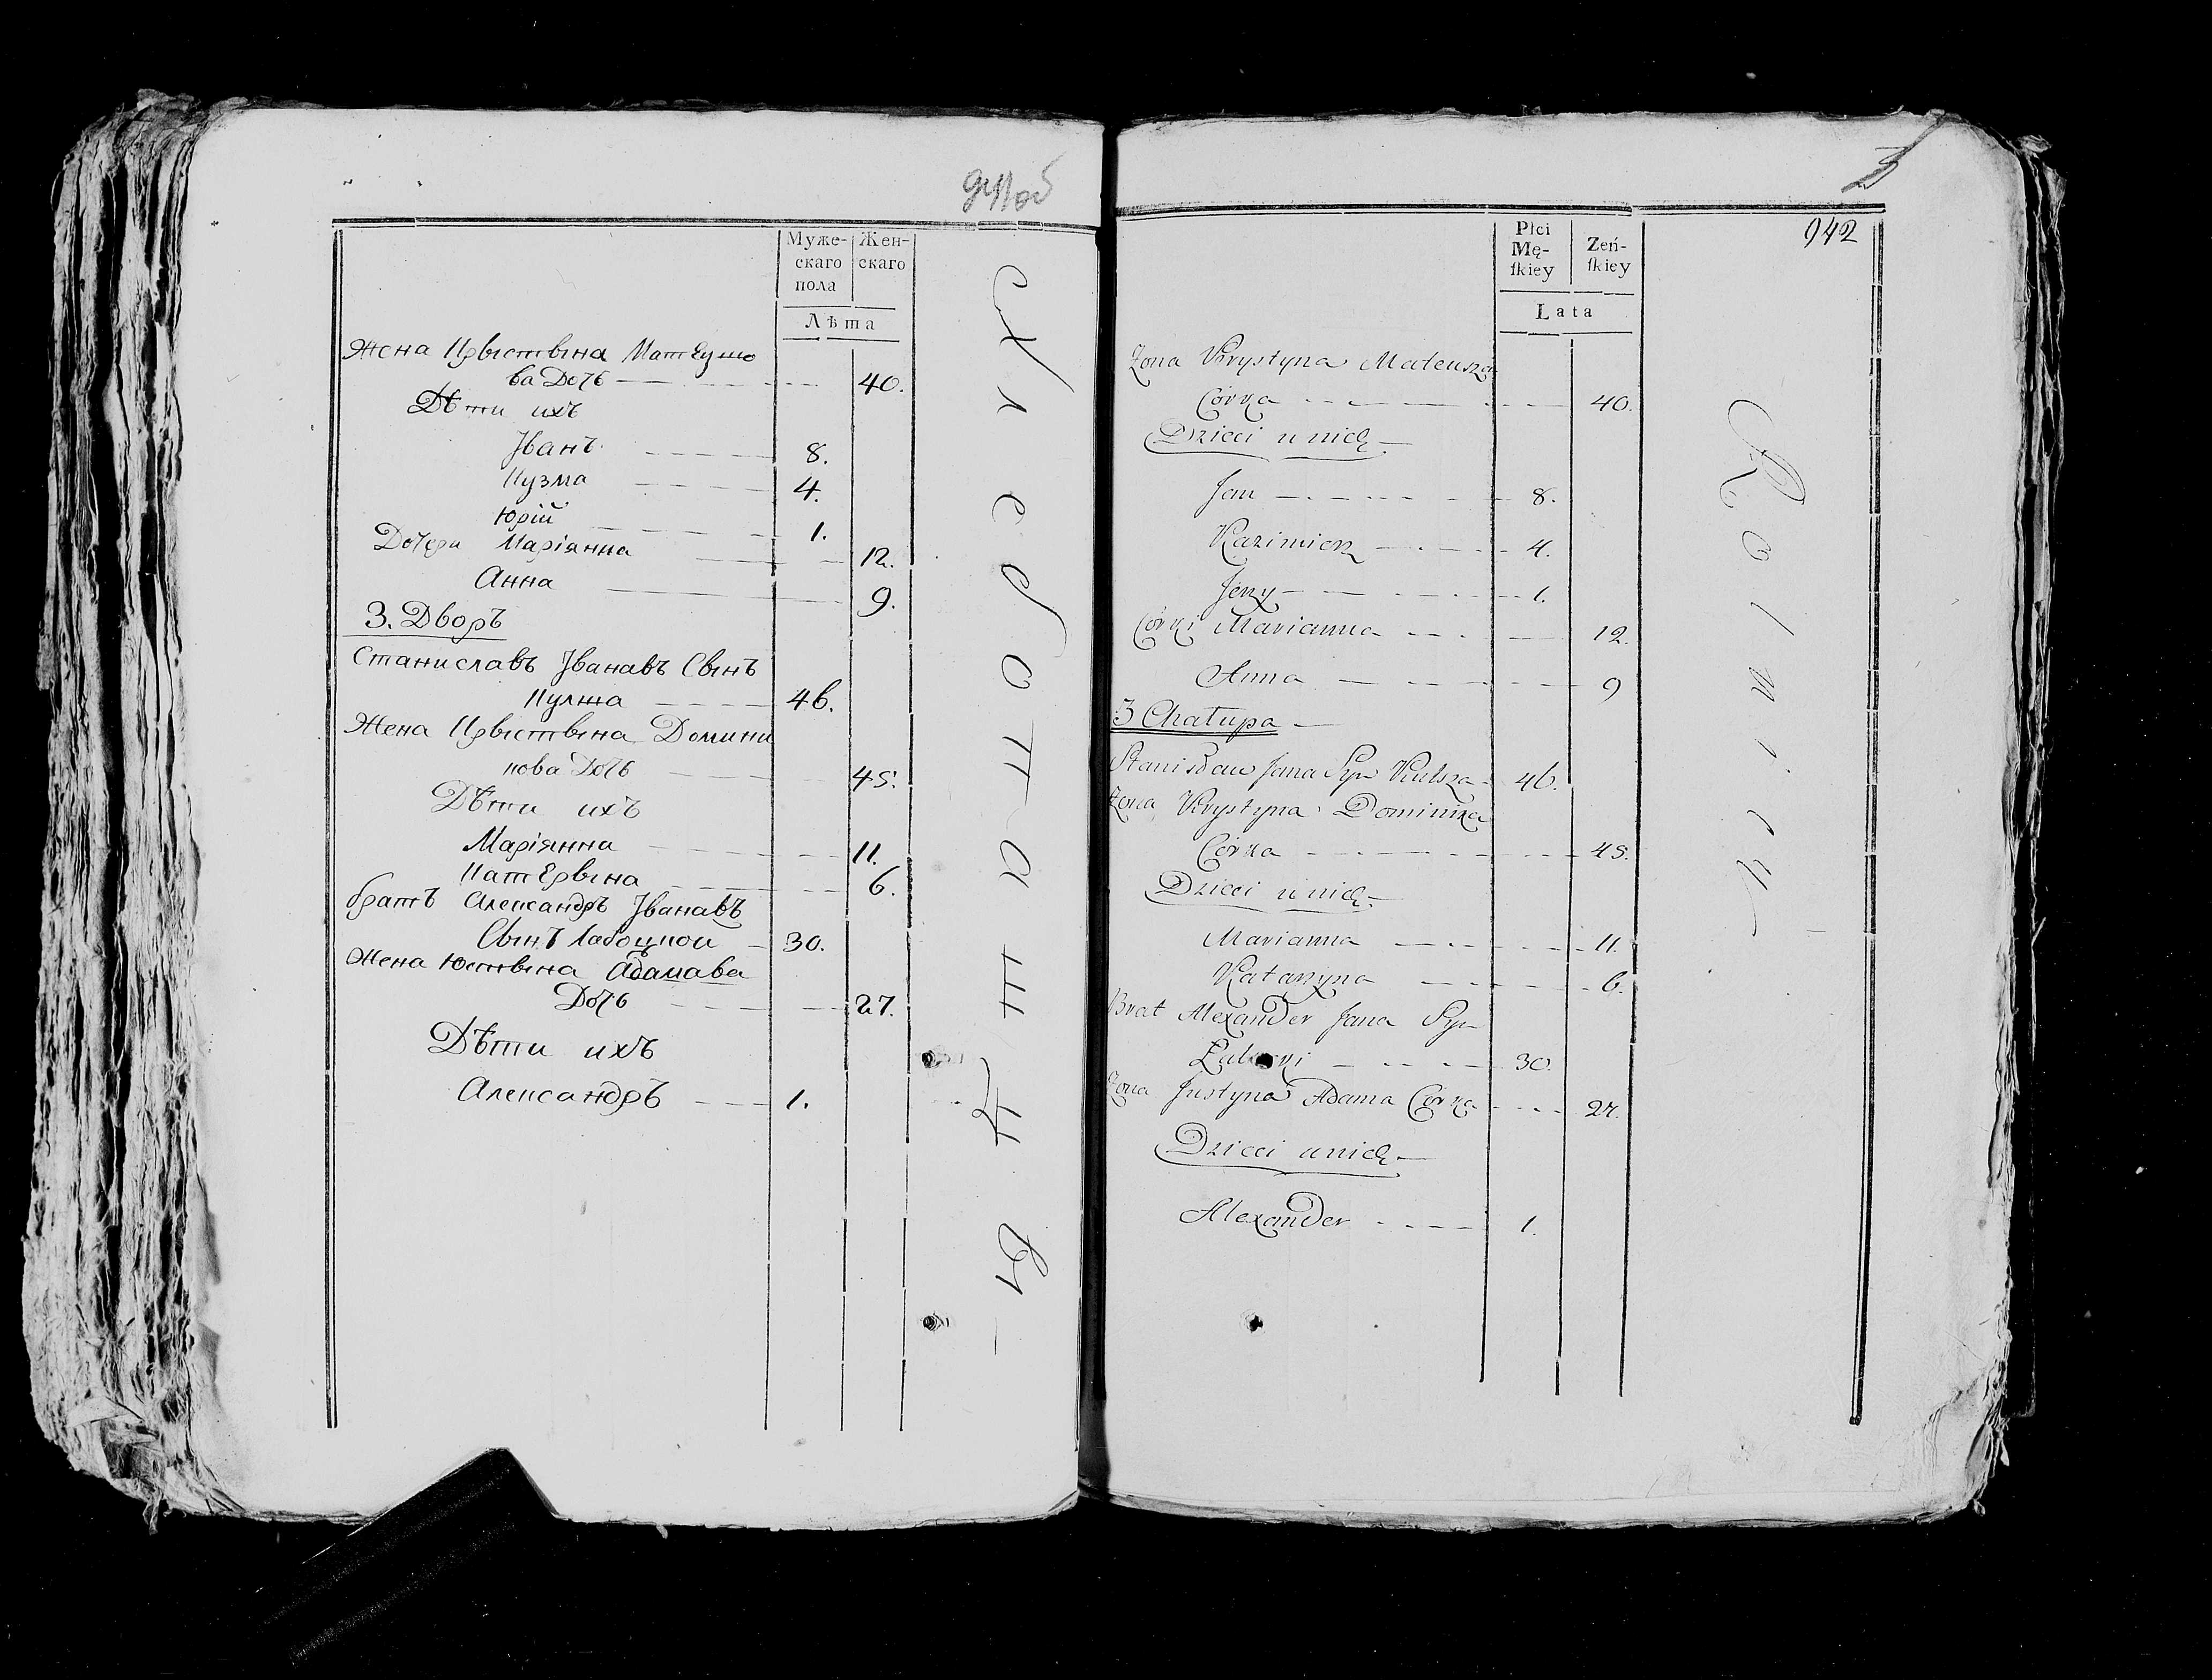 941об
Муже-
скаго
пола
Жен-
скаго
Лѣта
Жена Крыстына Матеушо
ва Дочь 40.
Дѣти ихъ
Іванъ 8.
Кузма 4.
Юрій 1.
Дочери Маріянна 12.
Анна 9.
3. Дворъ
Станиславъ Іванавъ Сынъ
Кулша 46.
Жена Крыстына Домини
кова Дочь 45.
Дѣти ихъ
Маріянна 11.
Катерына 6.
братъ Александръ Іванавъ
Сынъ 30.
Жена Юстына Адамава
Дочь 27.
Дѣти ихъ
Александръ 1.
Хлебопашцы
942
Płci
Mę-
ſkiey
Zeń-
ſkiey
Lata
Zona Krystyna Mateusza
Córka 40.
Dzieci u nich
Jan 8.
Kazimierz 4.
Jerzy 1.
Córki Marianna 12.
Anna 9
3 Chałupa
Stanisław Jana Syn Kulsza 46.
Zona Krystyna Dominika
Córka 45.
Dzieci u nich
Marianna 11.
Katarzyna 6.
Brat Alexander Jana Syn
30.
Zona Justyna Adama Córka 27.
Dzieci u nich
Alexander 1.
Rolnicy